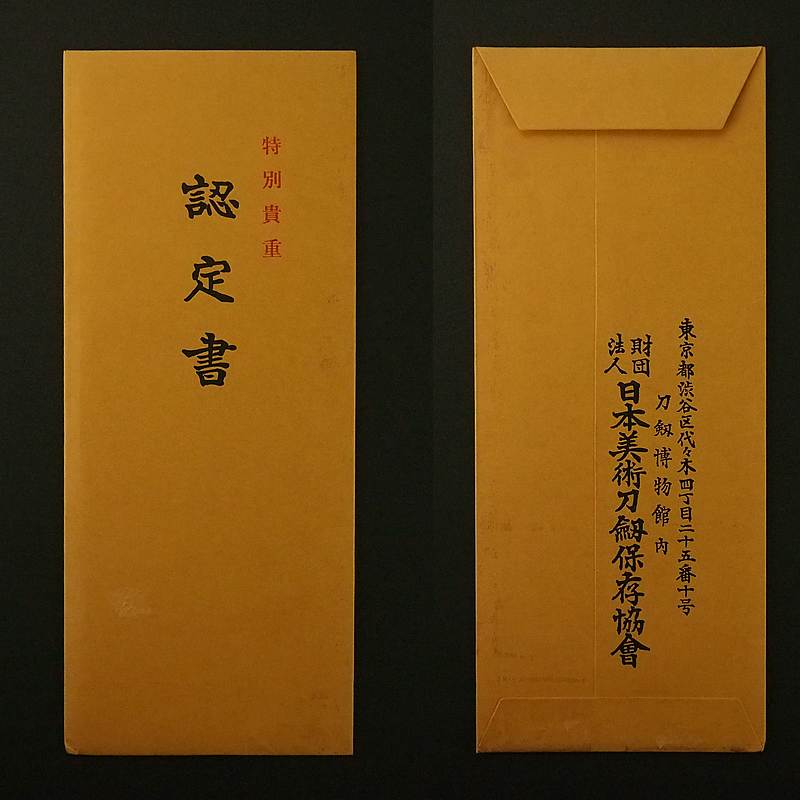 特別貴重
認定書
東京都渋谷区代々木四丁目二十五番十号
刀劔博物館内
財団
法人
日本美術刀劔保存協會